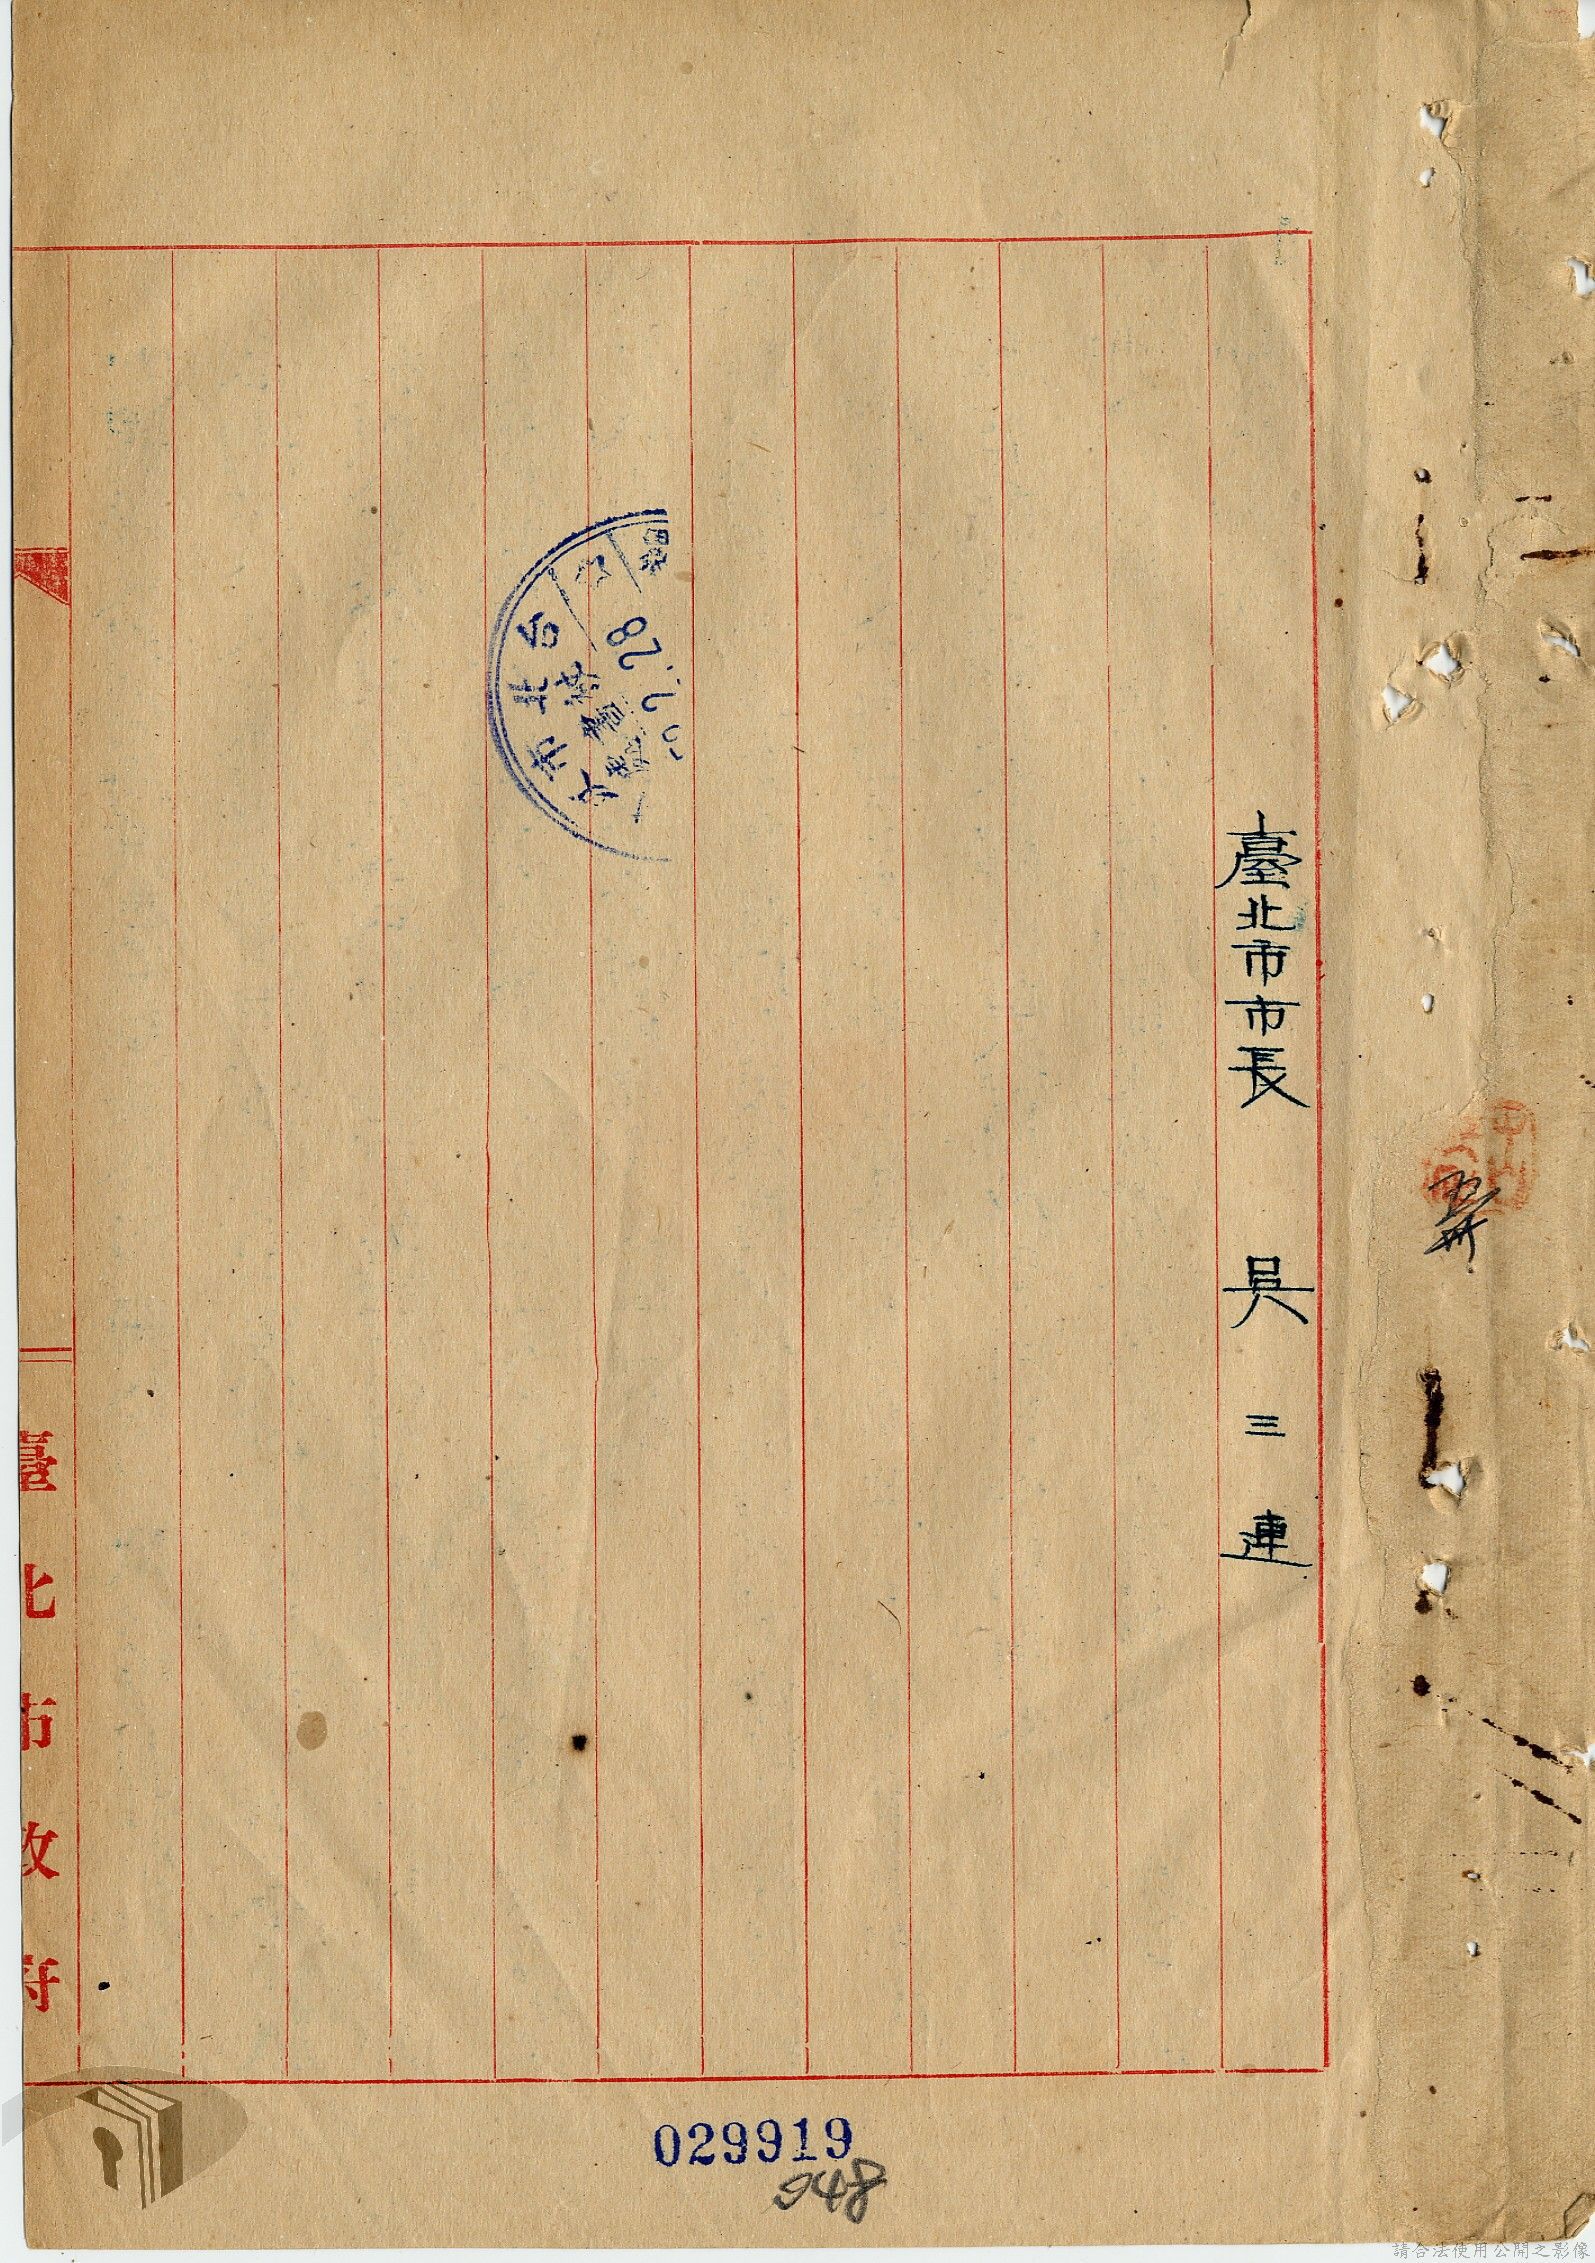 臺北市市長　吳三連
台北市
28
臺北市政府
029919
948
請合法使用公開之影像